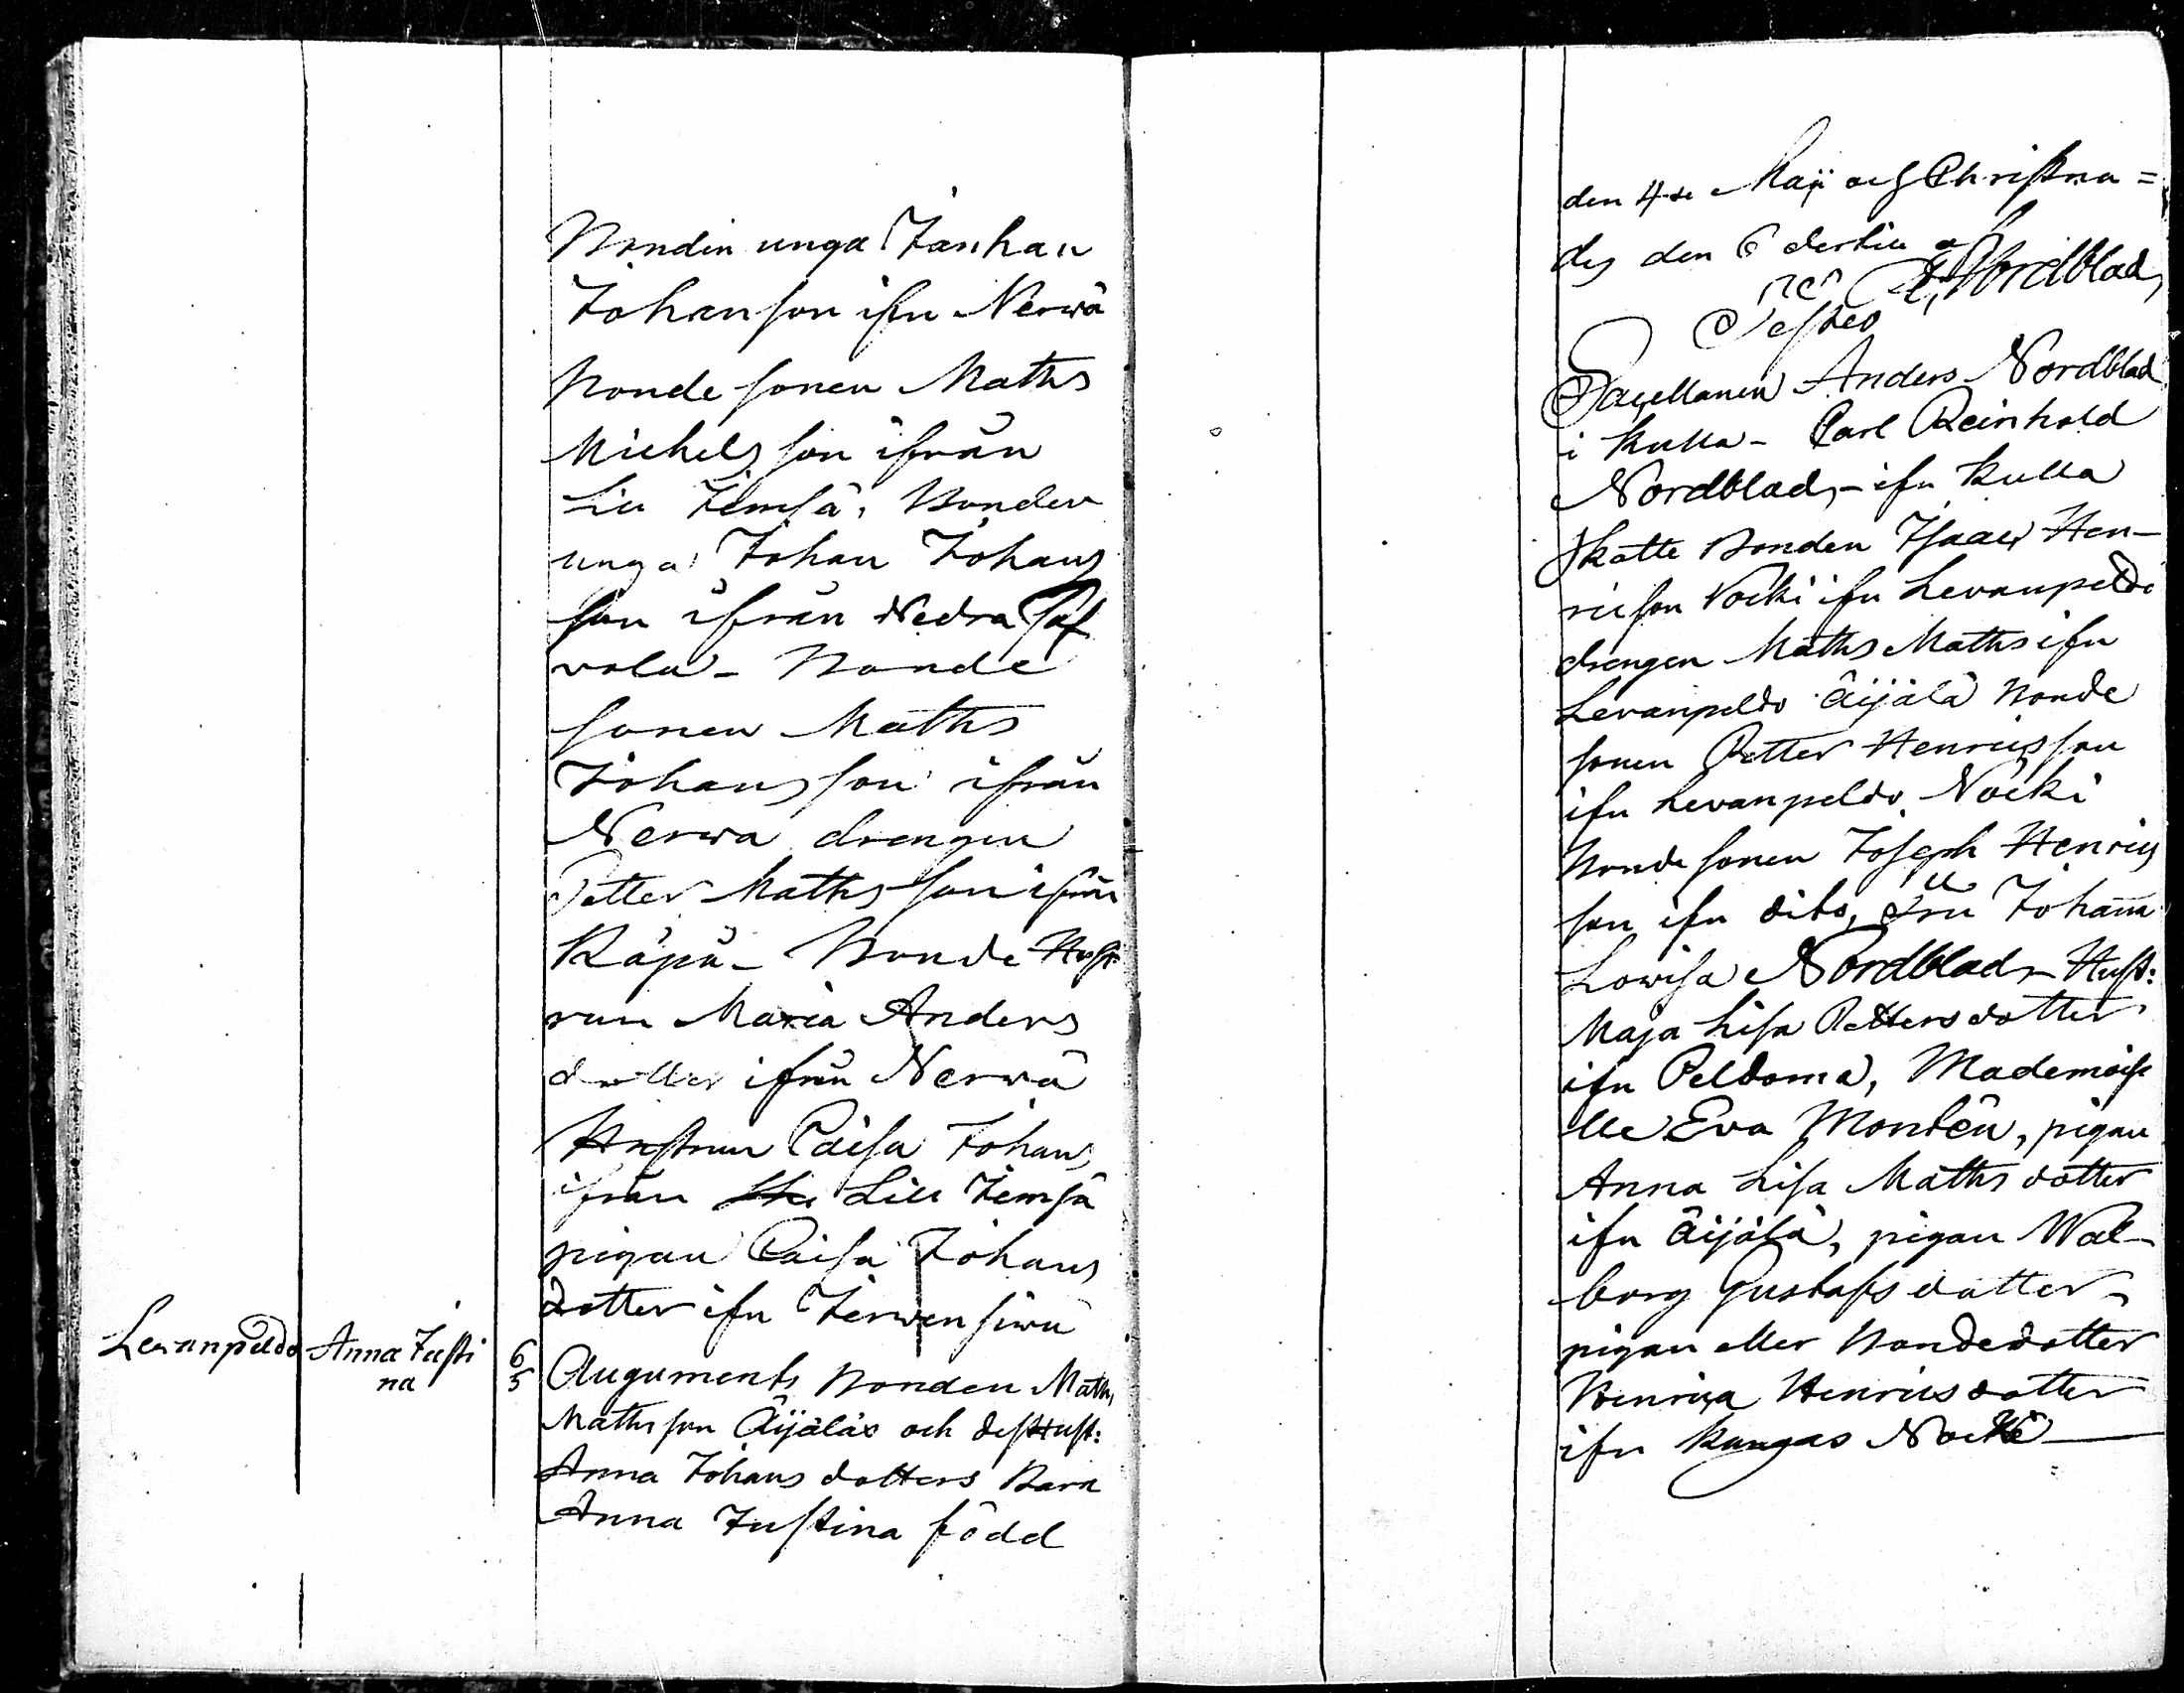 Bonden unga Johan
Johansson ifrn Nerwä
Bonde sonen Maths
Michelsson ifrån
Lill Jemsä, Bonden
unga Johan Johans
son ifrån Nedra Saf
vola - Bonde
sonen Maths
Johansson ifrån
Nerwä drengen
Petter Mathsson ifrån
Räpä - Bonde Hust
run Maria Anders
dotter ifrån Nerwä
Hustrun Caisa Johans
ifrån Lill Jemsä
pigan Caisa Johans
dotter ifrn
Levanpeldo Anna Justi
na
6
5
Auguments Bonden Maths
Mathsson Äijäläs och dess Hust:
Anna Johans dotters Barn
Anna Justina född
den 4de Maji och Christna=
des den 6 dertill af
A, Nordblad,
Testes
Capellanen Anders Nordblad
i Kulla - Carl Reinhold
Nordblad, - ifrn Kulla
Skatte Bonden Isaac Hen-
ricson Nocki ifrn Levanpeldo
drengen Maths Maths ifrn
Levanpeldo Äijälä Bonde
sonen Petter Henricsson
ifrn Levanpeldo Nocki
Bonde sonen Joseph Henrics
son ifrn dito, Fru Johanna
Lowisa Nordblad, Hust:
Maja Lisa Petters dotter
ifrn Peldoma, Mademoise
lle Eva Montén, pigan
Anna Lisa Maths dotter
ifrn Äijälä, pigan Wal-
borg Gustafs dotter
pigan eller Bondedotter
Henrica Henrics dotter
ifrn Kangas Nocki